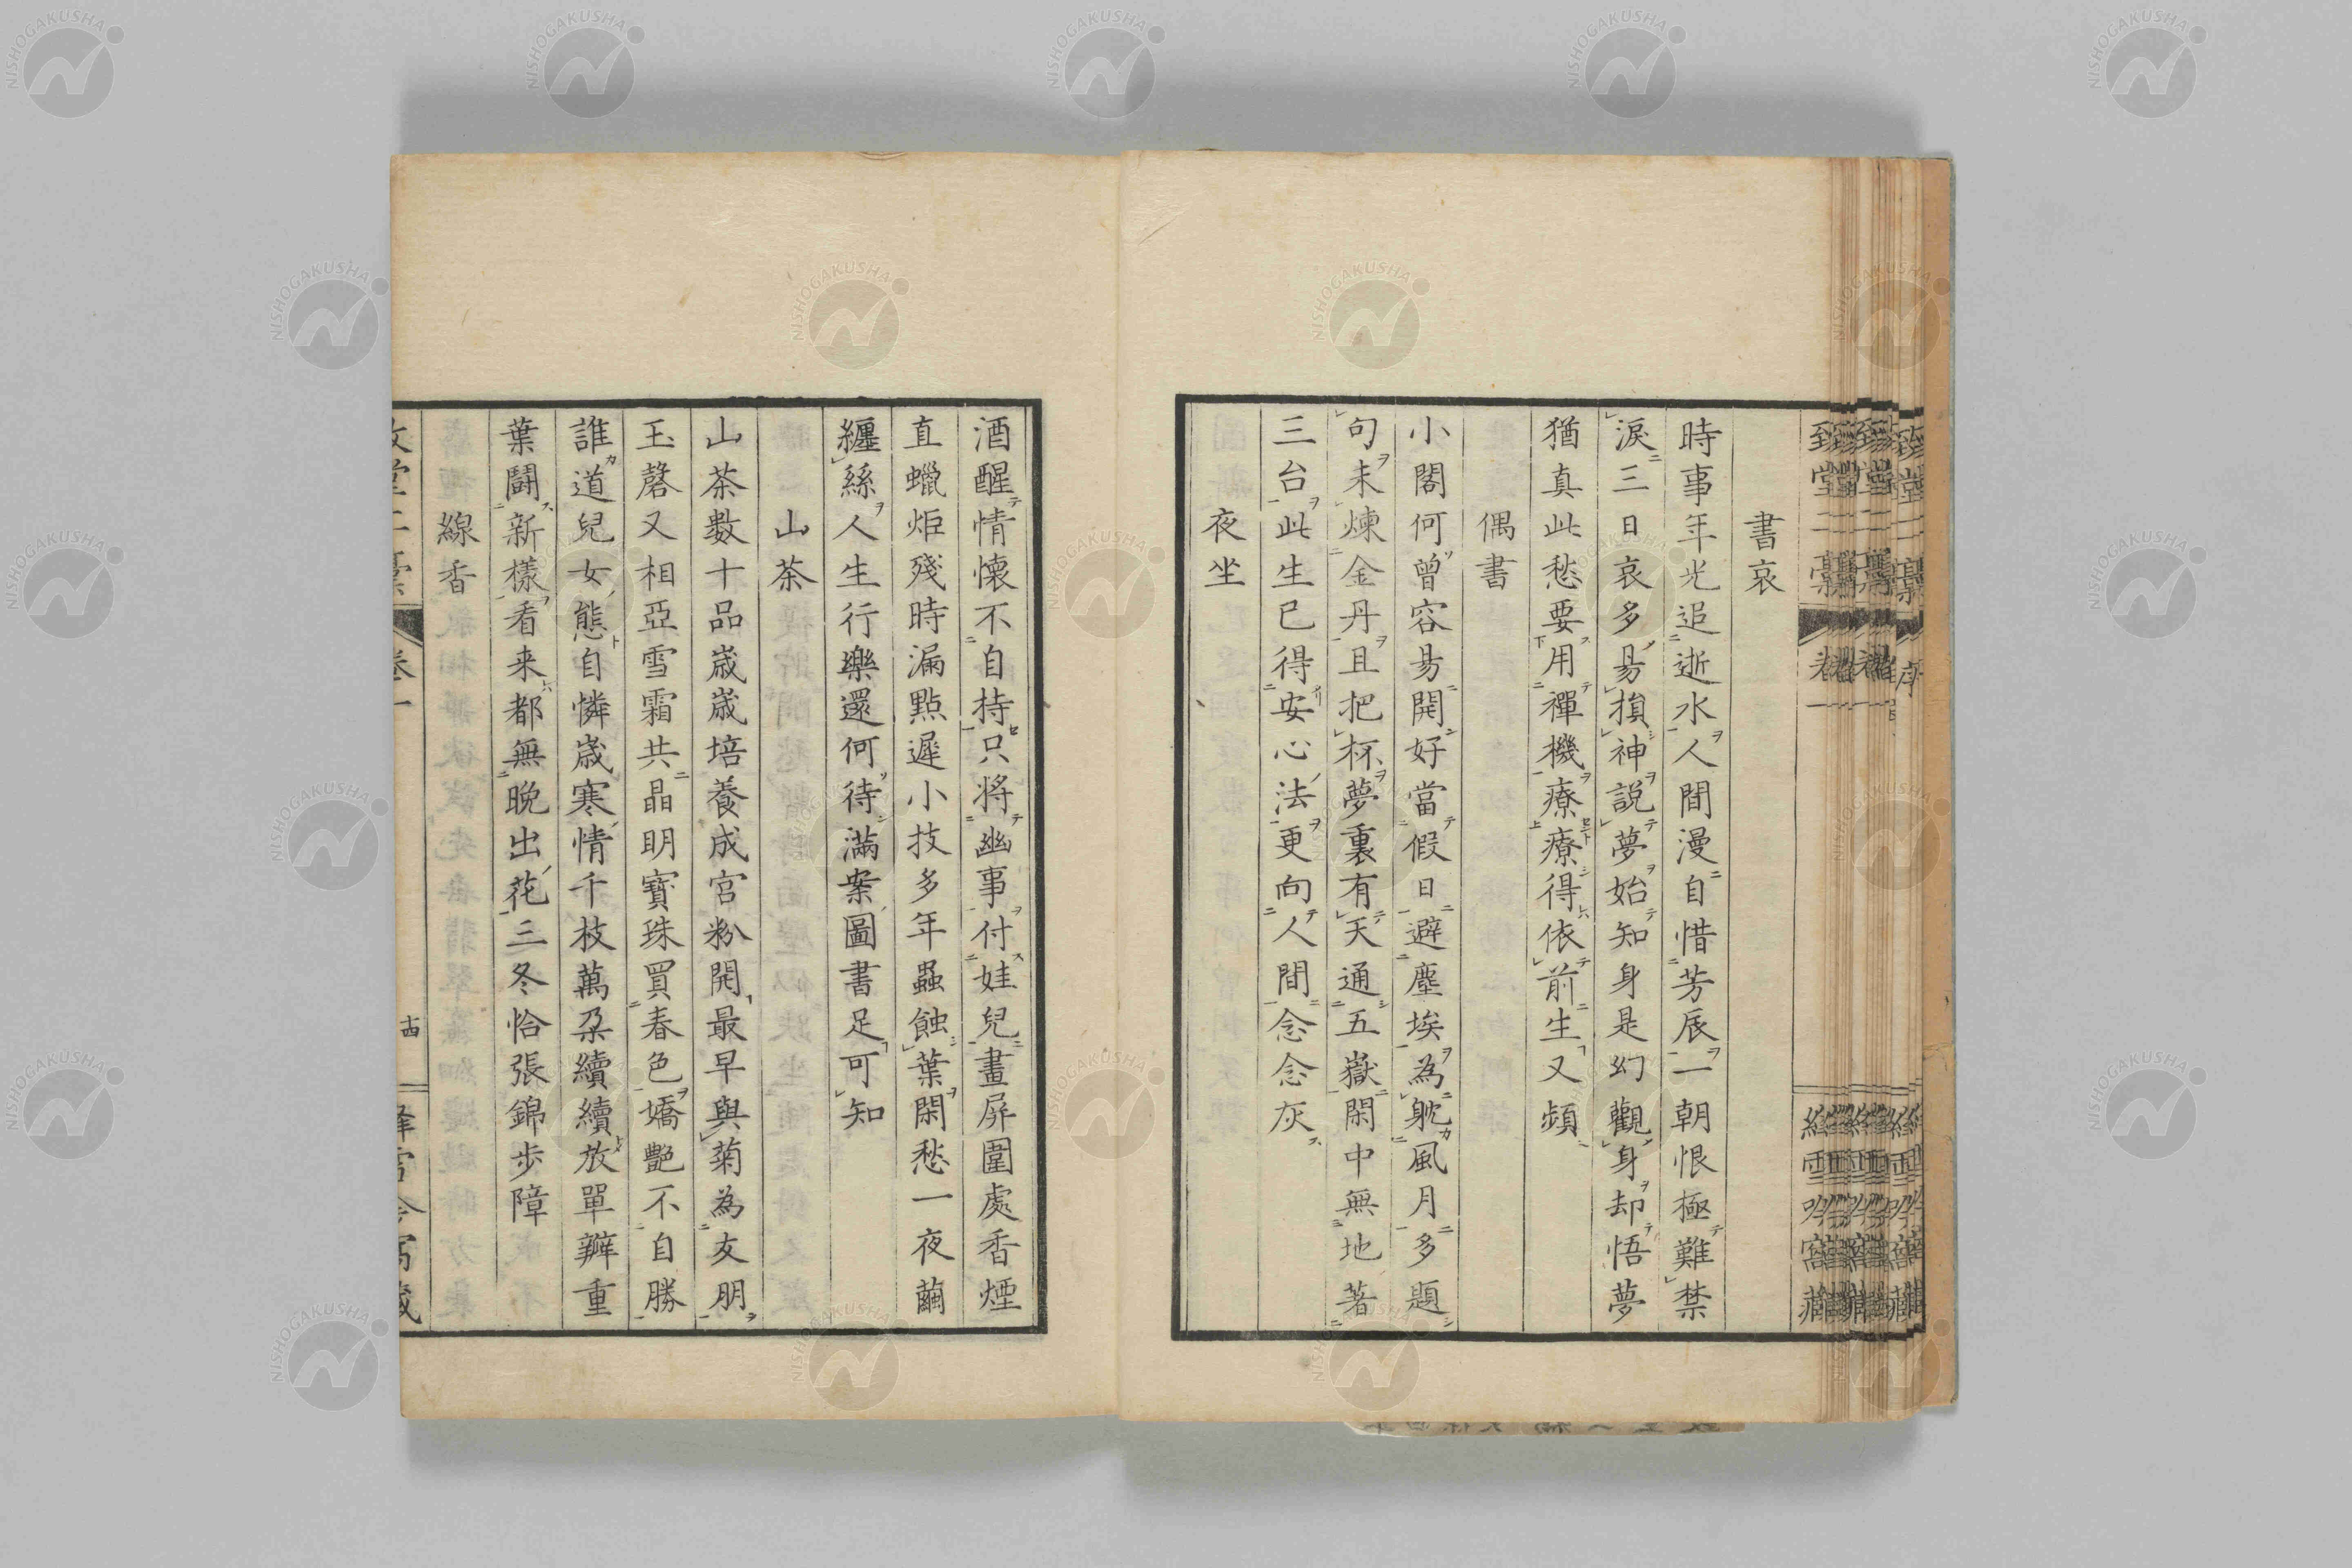 書哀
時事年光追逝水人間漫自惜芳辰一朝恨極難禁
淚三日哀多易損神説夢始知身是幻觀身却悟夢
猶真此愁要用禪機療療得依前生又頻
偶書
小閣何曾容易開好當假日避塵埃為躭風月多題
句未煉金丹且把杯夢裏有天通五嶽閑中無地著
三台此生已得安心法更向人間念念灰
夜坐
酒醒情懷不自持只將幽事付娃兒畫屏圍處香煙
直蠟炬殘時漏點遲小技多年蟲蝕葉閑愁一夜繭
纏絲人生行樂還何待滿案圖書足可知
山茶
山茶數十品歲歲培養成宮粉開最早與菊為友朋
玉磬又相亞雪霜共晶明寶珠買春色嬌艷不自勝
誰道兒女態自憐歲寒情千枝萬朶續續放單瓣重
葉鬪新樣看来都無晚出花三冬恰張錦步障
線香
卷一
十四
NISHOGAKUSHA